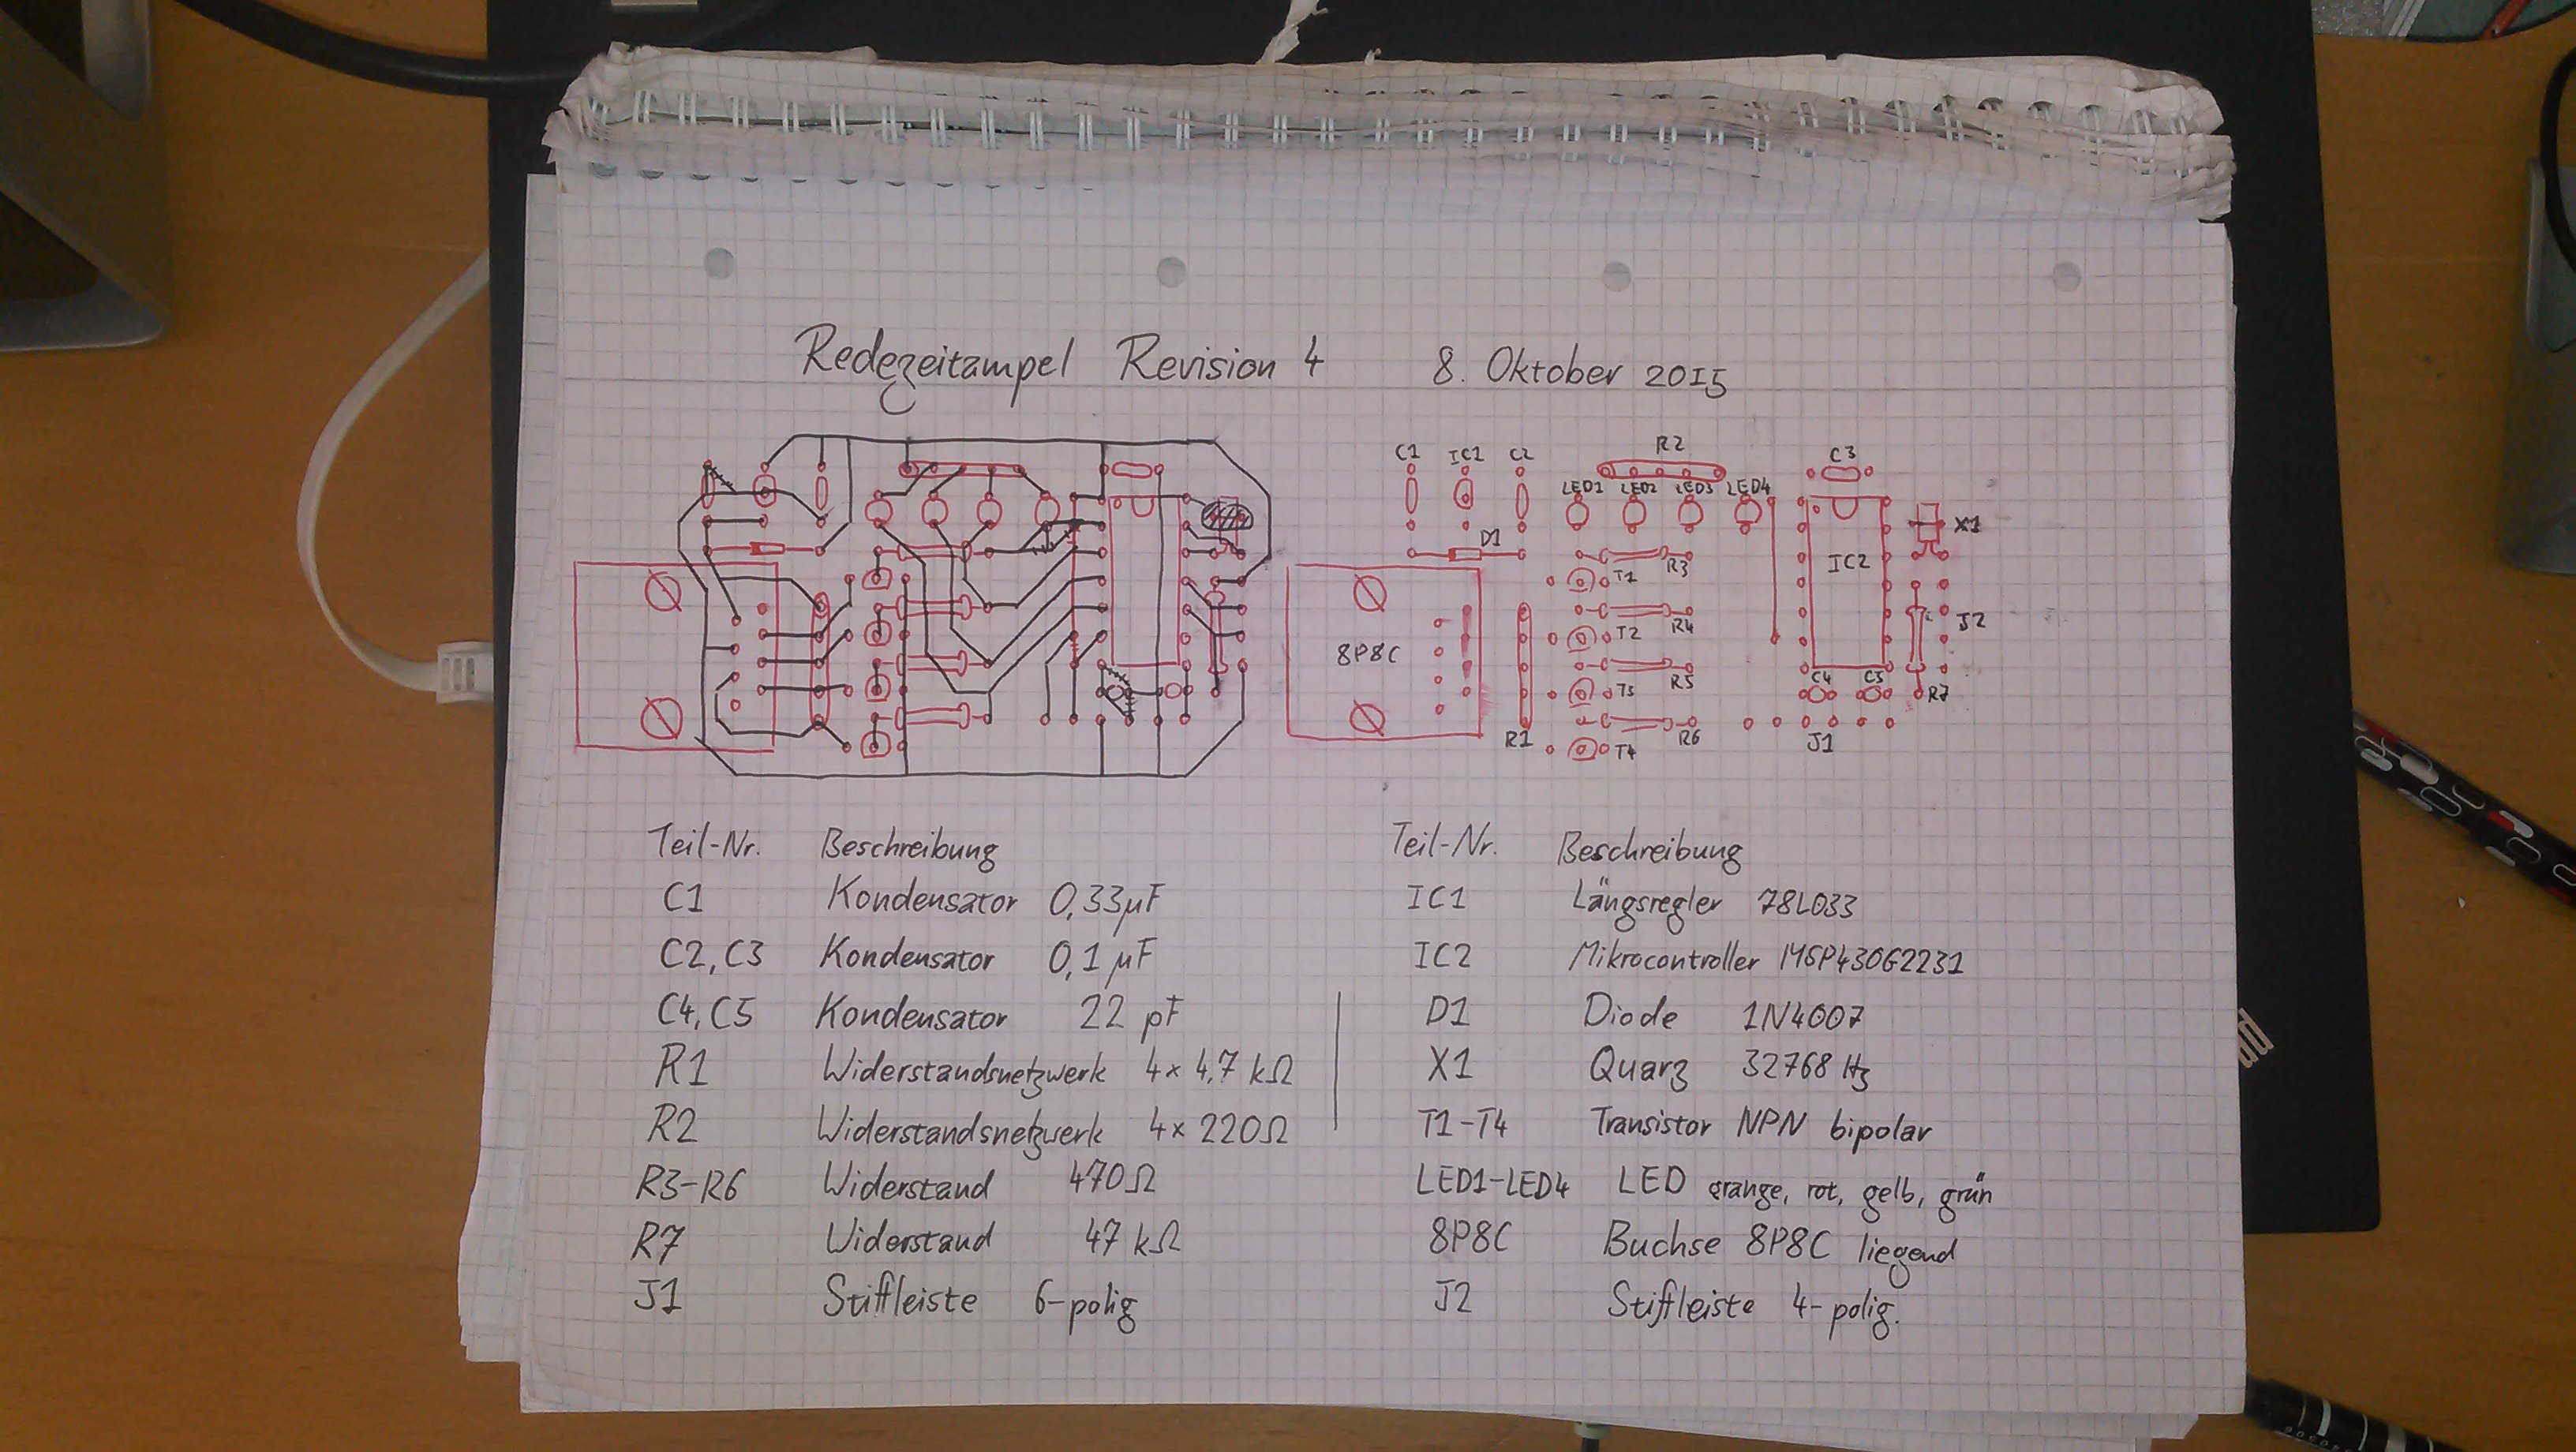 Redezeitampel Revision 4 8. Oktober 2015
C1 IC1 C2 R2 C3
LED1 LED2 LED3 LED4
D1 X1
IC2
T1 R3
8P8C T2 R4 J2
T3 R5 C4 C5 R7
R1 T4 R6 J1
Teil-Nr. Beschreibung
C1 Kondensator 0,33µF
C2, C3 Kondensator 0,1 µF
C4, C5 Kondensator 22 pF
R1 Widerstandsnetzwerk 4x 4,7 kΩ
R2 Widerstandsnetzwerk 4x 220Ω
R3-R6 Widerstand 470Ω
R7 Widerstand 47 kΩ
J1 Stiftleiste 6-polig
Teil-Nr. Beschreibung
IC1 Längsregler 78L033
IC2 Mikrocontroller MSP430G2231
D1 Diode 1N4007
X1 Quarz 32768 Hz
T1-T4 Transistor NPN bipolar
LED1-LED4 LED orange, rot, gelb, grün
8P8C Buchse 8P8C liegend
J2 Stiftleiste 4-polig.